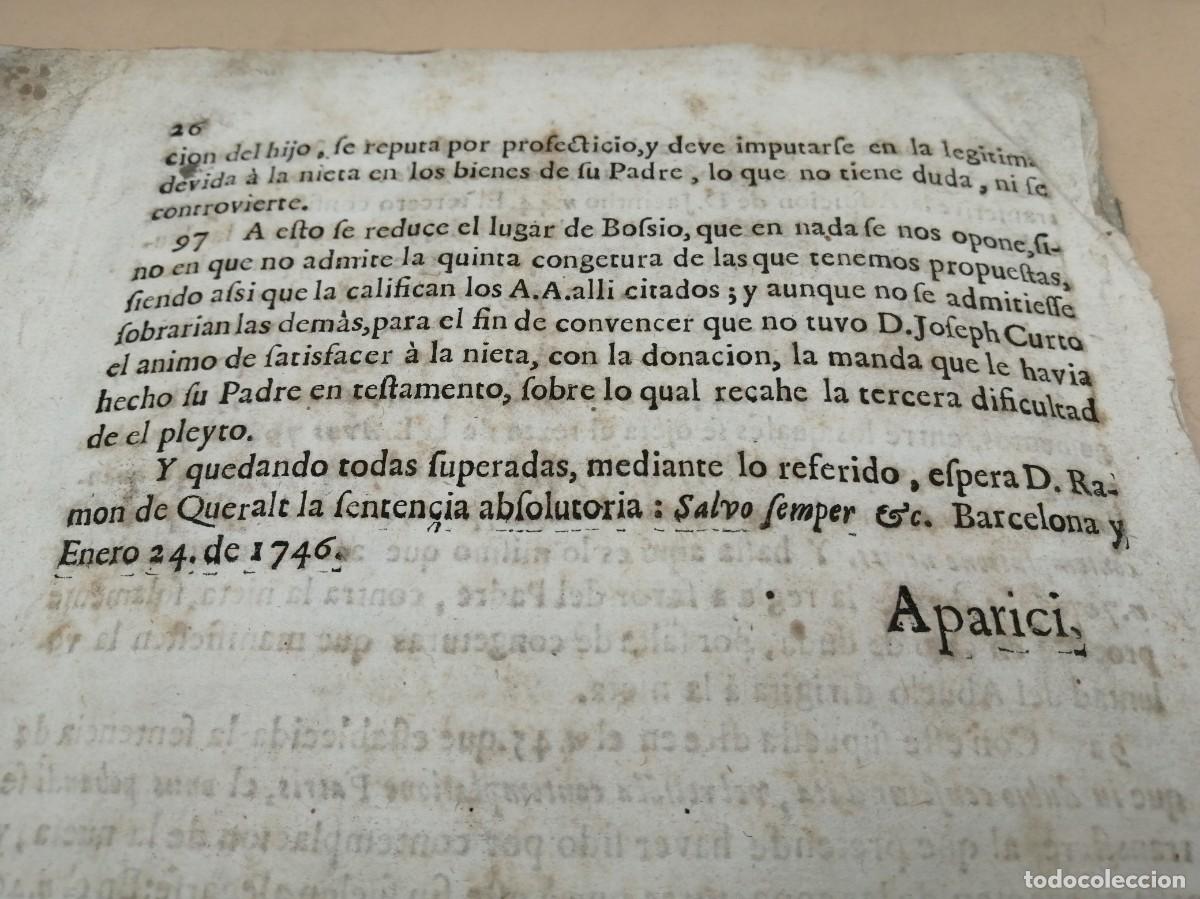 26
cion del hijo, ſe reputa por profecticio, y deve imputarſe en la legitima
devida à la nieta en los bienes de ſu Padre, lo que no tiene duda, ni ſe
controvierte.
97 A eſto ſe reduce el lugar de Boſsio, que en nada ſe nos opone, ſi-
no en que no admite la quinta congetura de las que tenemos propueſtas,
ſiendo aſsi que la califican los A.A. alli citados; y aunque no ſe admitieſſe
ſobrarian las demàs, para el fin de convencer que no tuvo D. Joſeph Curto
el animo de ſatisfacer à la nieta, con la donacion, la manda que le havia
hecho ſu Padre en teſtamento, ſobre lo qual recahe la tercera dificultad
de el pleyto.
Y quedando todas ſuperadas, mediante lo referido, eſpera D. Ra-
mon de Queralt la ſentencia abſolutoria: Salvo ſemper &c. Barcelona y
Enero 24. de 1746.
Aparici,
todocoleccion